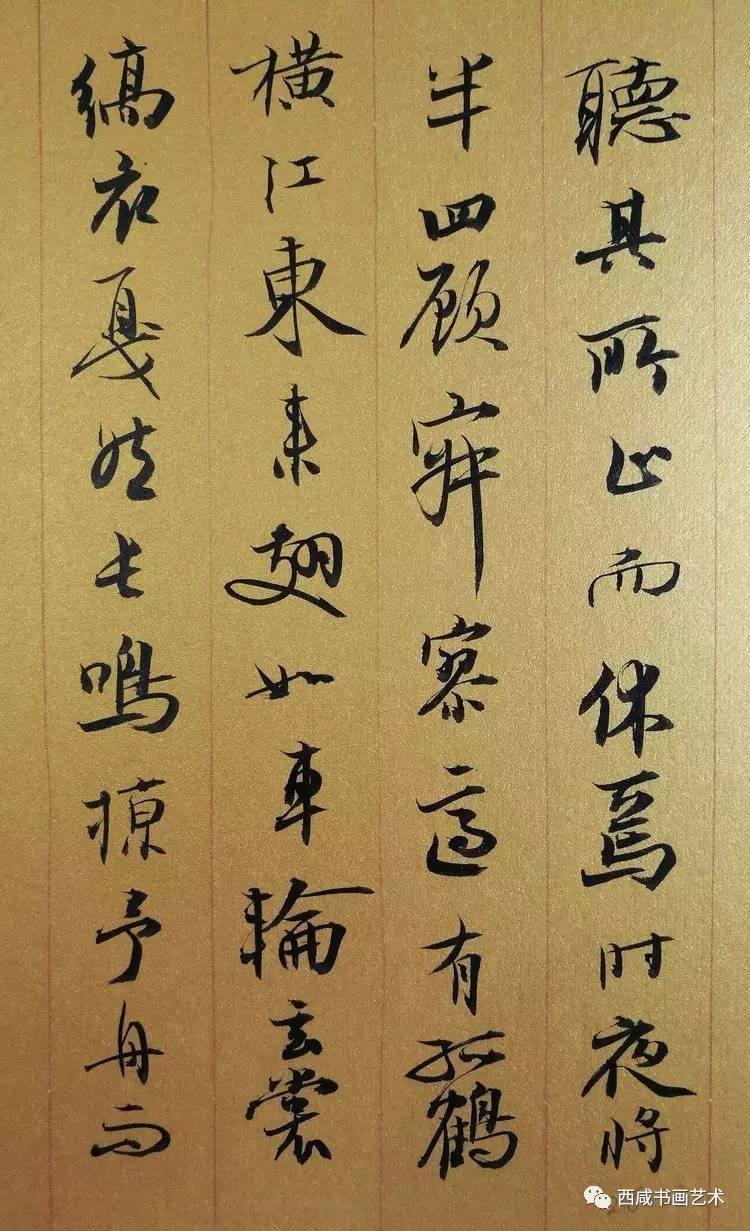 聽其所止而休焉时夜将
半四顾寂寥適有孤鶴
橫江東来翅如車輪玄裳
縞衣戛然長鳴掠予舟而
西咸书画艺术